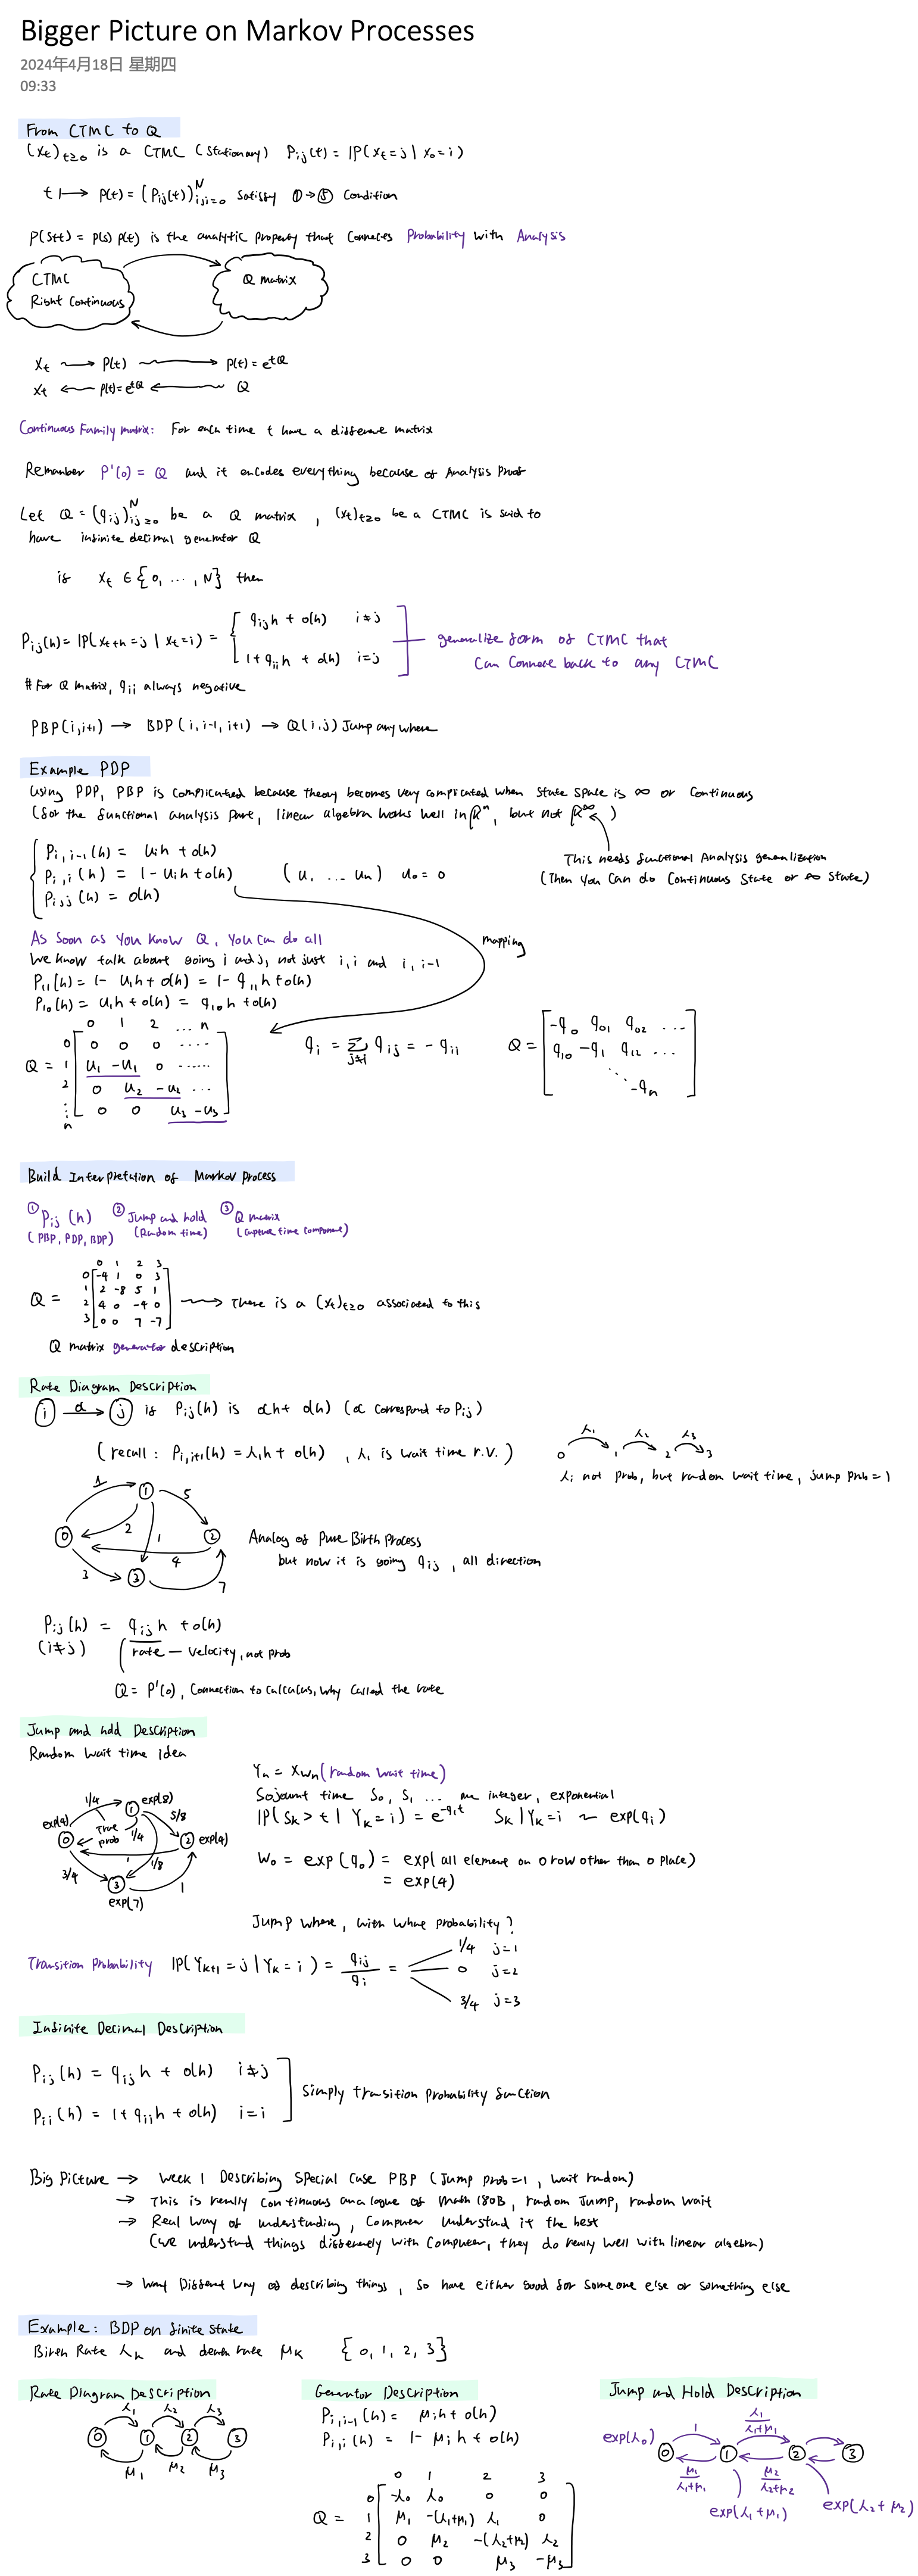 Bigger Picture on Markov Processes
2024年4月18日 星期四
09:33
From CTMC to Q
(Xt)t≥0 is a CTMC (Stationary) Pij(t) = IP(Xt=j | X0=i)
t ↦ P(t) = (Pij(t))^N i,j=0 Satisfy ①→⑤ Condition
P(s+t) = P(s) P(t) is the analytic property that connects Probability with Analysis
CTMC
Right Continuous
Q matrix
Xt → P(t) → P(t) = e^tQ
Xt ← P(t) = e^tQ ← Q
Continuous Family matrix: For each time t have a different matrix
Remember P'(0) = Q and it encodes everything because of Analysis Proof
Let Q = (qij)^N ij≥0 be a Q matrix, (Xt)t≥0 be a CTMC is said to
have infinite decimal generator Q
if Xt ∈ {0, ..., N} then
Pij(h) = IP(Xt+h = j | Xt = i) = { qijh + o(h) i≠j
1 + qiih + o(h) i=j
generalize form of CTMC that
Can Connect back to any CTMC
# For Q matrix, qii always negative
PBP(i,i+1) → BDP(i,i-1,i+1) → Q(i,j) Jump any where
Example PDP
Using PDP, PBP is complicated because theory becomes very complicated when State space is ∞ or Continuous
(for the functional analysis part, linear algebra works well in R^n, but not R^∞)
Pi,i-1(h) = uih + o(h)
Pi,i(h) = 1 - uih + o(h) (u1 ... un) u0 = 0
Pi,j(h) = o(h)
This needs functional Analysis generalization
(Then you can do Continuous State or ∞ State)
As soon as you know Q, you can do all
We know talk about going i and j, not just i,i and i,i-1
mapping
P11(h) = 1 - u1h + o(h) = 1 - q11h + o(h)
P10(h) = u1h + o(h) = q10h + o(h)
0 1 2 ... n
0 0 0 0 ....
Q = 1 u1 -u1 0 ......
2 0 u2 -u2 ...
⋮ 0 0 u3 -u3
n
qi = Σ j≠i qij = -qii
Q = -q0 q01 q02 ...
q10 -q1 q12 ...
⋱
-qn
Build Interpretation of Markov Process
① Pij(h) ② Jump and hold ③ Q matrix
(PBP, PDP, BDP) (Random time) (Capture time component)
0 1 2 3
0 -4 1 0 3
1 2 -8 5 1
Q =
2 4 0 -4 0
3 0 0 7 -7
→ There is a (Xt)t≥0 associated to this
Q matrix generator description
Rate Diagram Description
i α→ j if Pij(h) is αh + o(h) (α correspond to Pij)
(recall: Pi,i+1(h) = λih + o(h), λi is wait time r.v.)
λ1 λ2 λ3
0 1 2 3
λi not prob, but random wait time, jump prob = 1
1
① 5
0 2 1 2
4
3 3 7
Analog of Pure Birth Process
but now it is going qij, all direction
Pij(h) = qijh + o(h)
(i≠j) rate — velocity, not prob
Q = P'(0), Connection to Calculus, why called the rate
Jump and hold Description
Random wait time idea
Yn = Xwn (random wait time)
Sojourn time S0, S1 ... are integer, exponential
IP(Sk > t | Yk = i) = e^-qit Sk | Yk = i ~ exp(qi)
W0 = exp(q0) = exp(all element on 0 row other than 0 place)
= exp(4)
1/4 exp(8)
1 5/8
exp(4) True prob 1/4
0 2 exp(4)
1 1/8
3/4 3 1
exp(7)
Jump where, with what probability?
Transition Probability IP(Yk+1 = j | Yk = i) = qij/qi =
1/4 j=1
0 j=2
3/4 j=3
Infinite Decimal Description
Pij(h) = qijh + o(h) i≠j
Pii(h) = 1 + qiih + o(h) i=i
Simply transition probability function
Big Picture → Week 1 Describing Special Case PBP (Jump prob=1, wait random)
→ This is really continuous analogue of Math 180B, random Jump, random wait
→ Real way of understanding, Computer understand it the best
(we understand things differently with Computer, they do really well with linear algebra)
→ Way Different way of describing things, so have either good for someone else or something else
Example: BDP on finite State
Birth Rate λk and death rate μk {0, 1, 2, 3}
Rate Diagram Description
λ1 λ2 λ3
0 1 2 3
μ1 μ2 μ3
Generator Description
Pi,i-1(h) = μih + o(h)
Pi,i(h) = 1 - μih + o(h)
0 1 2 3
0 -λ0 λ0 0 0
Q = 1 μ1 -(λ1+μ1) λ1 0
2 0 μ2 -(λ2+μ2) λ2
3 0 0 μ3 -μ3
Jump and Hold Description
exp(λ0) 1 λ1/λ1+μ1
0 1 2 3
μ1/λ1+μ1 μ2/λ2+μ2
exp(λ1+μ1) exp(λ2+μ2)